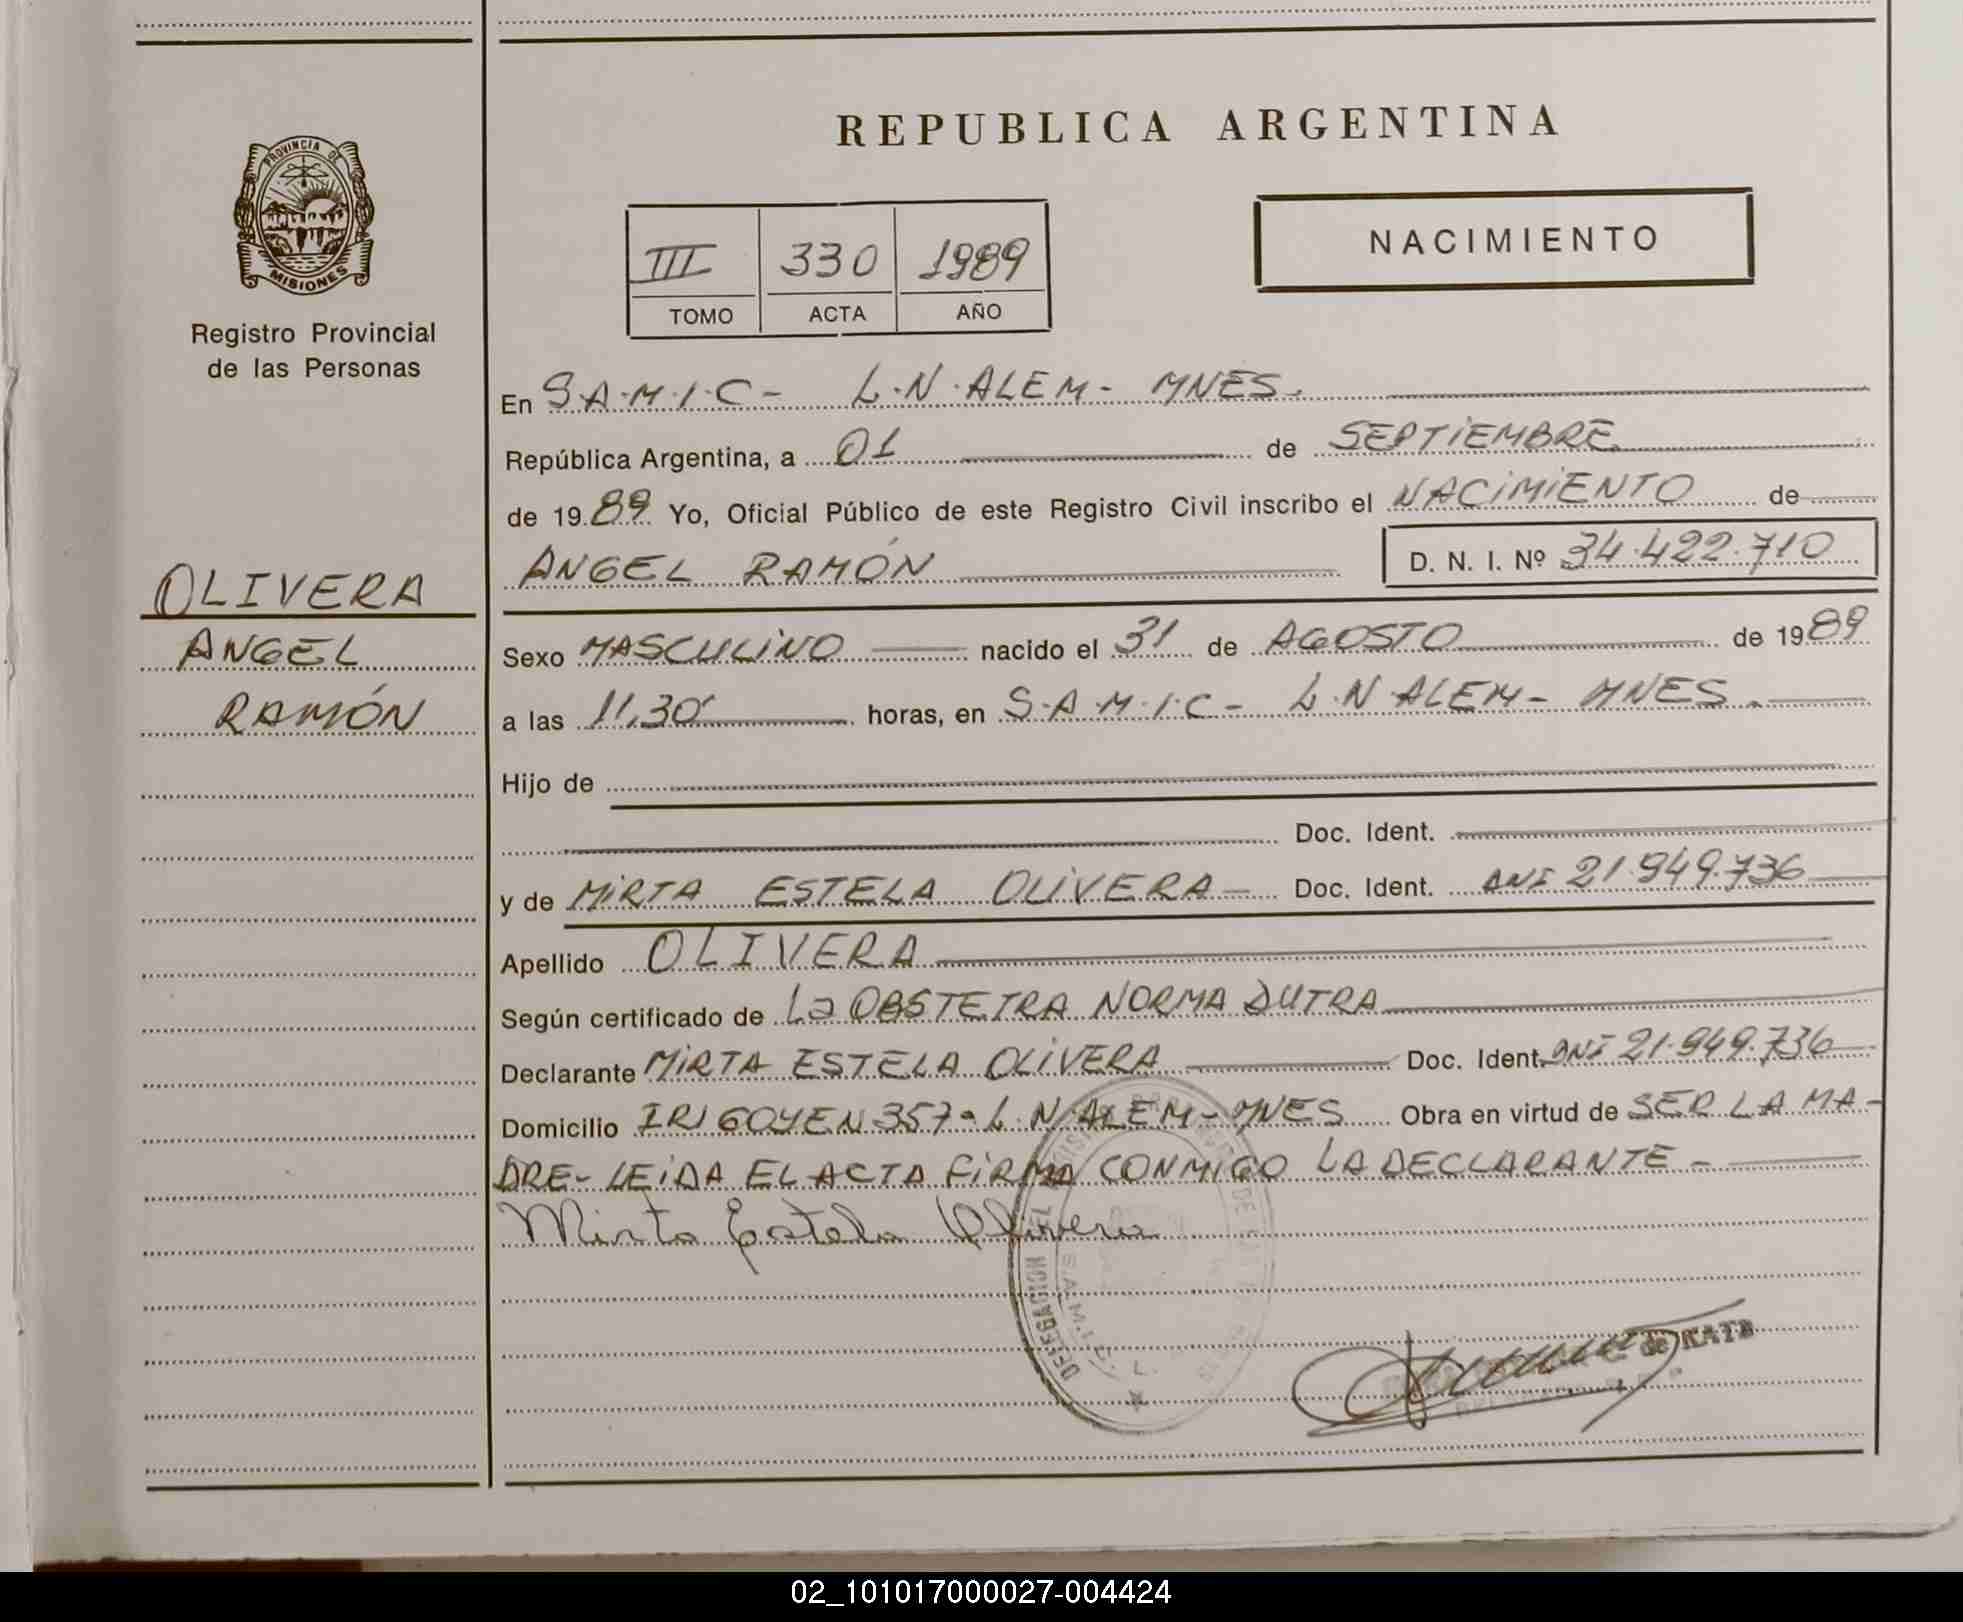 PROVINCIA DE
MISIONES
Registro Provincial
de las Personas
OLIVERA
ANGEL
RAMÓN
REPUBLICA ARGENTINA
III 330 1989
TOMO ACTA AÑO
NACIMIENTO
En S.A.M.I.C - L.N.ALEM - MNES.
República Argentina, a 01 de SEPTIEMBRE
de 1989 Yo, Oficial Público de este Registro Civil inscribo el NACIMIENTO de
ANGEL RAMÓN D. N. I. Nº 34.422.710
Sexo MASCULINO nacido el 31 de AGOSTO de 1989
a las 11,30' horas, en S.A.M.I.C - L.N ALEM - MNES.
Hijo de
Doc. Ident.
y de MIRTA ESTELA OLIVERA - Doc. Ident. DNI 21.949.736
Apellido OLIVERA
Según certificado de La OBSTETRA NORMA DUTRA
Declarante MIRTA ESTELA OLIVERA Doc. Ident. DNI 21.949.736
Domicilio IRIGOYEN 357 - L.N.ALEM - MNES Obra en virtud de SER LA MA-
DRE - LEIDA EL ACTA FIRMA CONMIGO LA DECLARANTE -
Mirta Estela Olivera
DELEGACION DEL
de KATZ
02_101017000027-004424